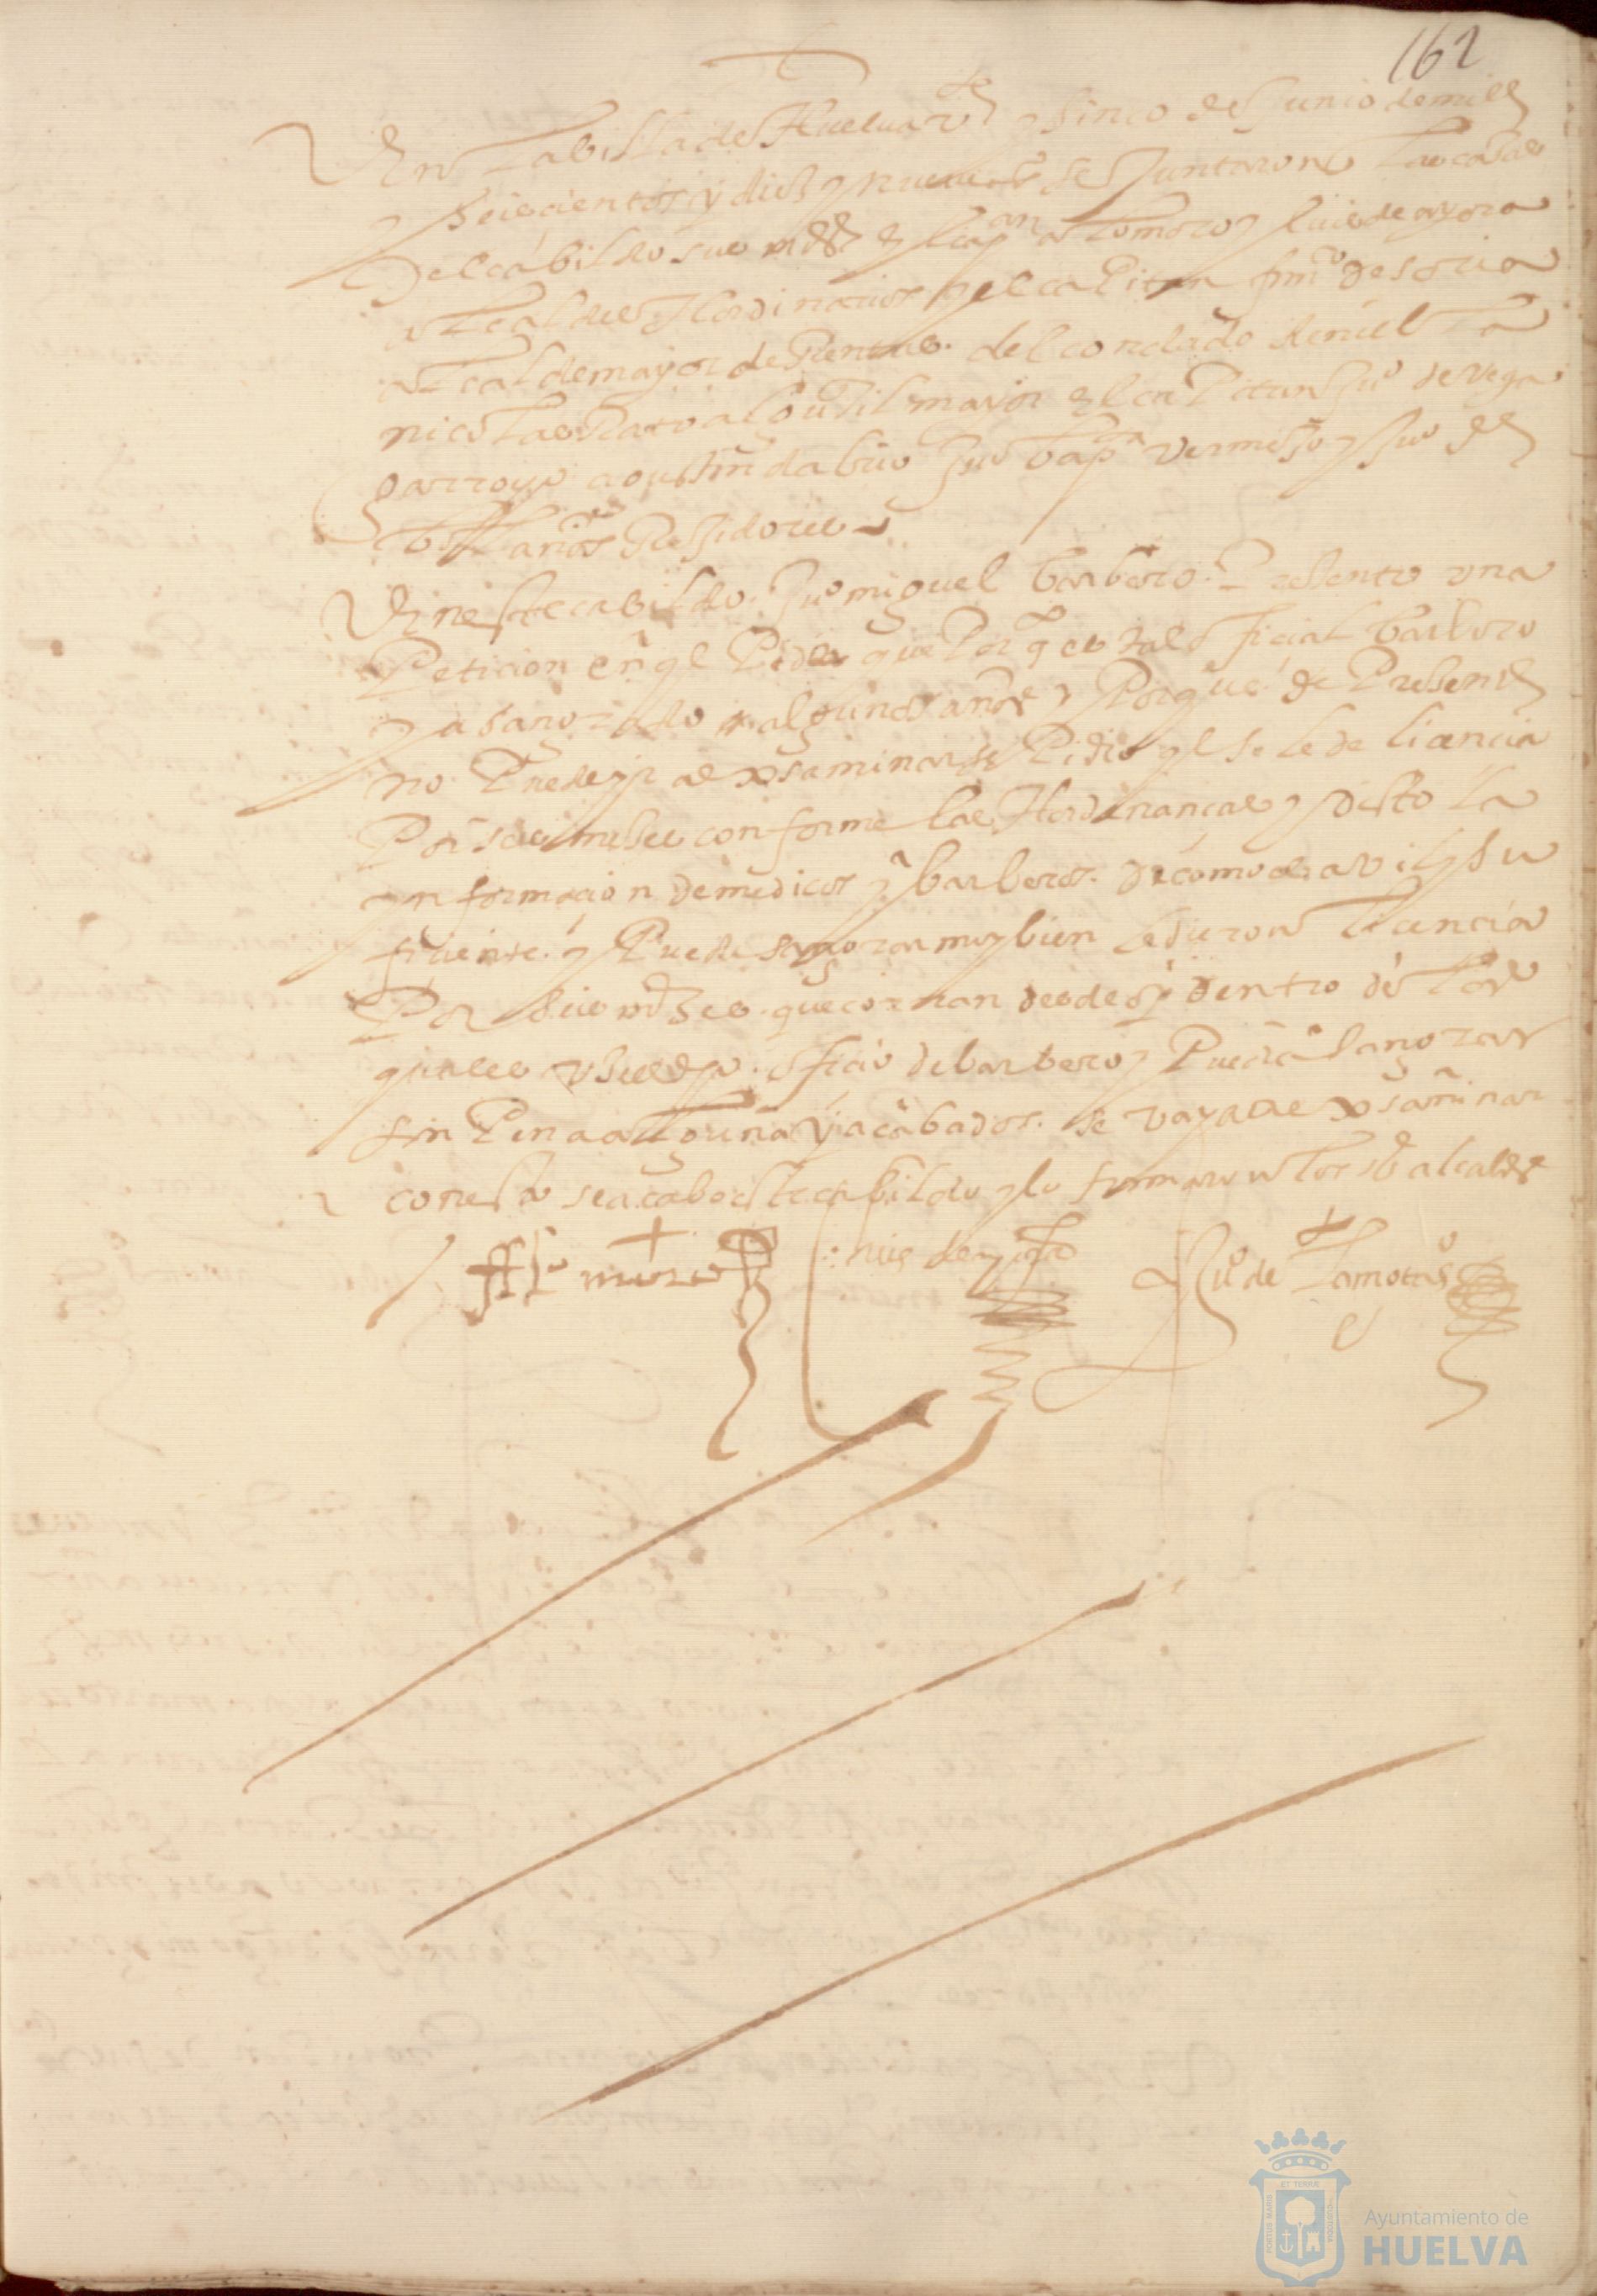 162
En la billa de Huelua v te y sinco de Junio de mill
y seiscientos y dies y nueue se Juntaron las casas
del cabildo sus mds el cap an a° moro y luis de ayora
alcaldes Hordinarios y el capitan fr° de soria
alcalde mayor de Rentas del condado de niebla
nicolas Rato alguasil mayor el capitan Ju° de vega
garrocho agustin dabiro Ju° bap ta vermejo y Ju° de
Resjidores
En este cabildo Ju° miguel barbero Presento una
Peticion en q el Pide que Por q es tal oficial barbero
y a sangrado algunos años y Porque de Presente
no Puede yr a exsaminarse Pidio q se le de licencia
Por seis meses conforme las Hordinancas y visto la
ynformacion de medicos y barberos de como es avil y su
ficiente y Puede sangrar muy bien le dieron licencia
Por seis meses que corran desde oy dentro de los
quales vse el dho oficio de barbero y Pueda sangrar
sin Pena alguna y acabados se vaya a exsaminar
con esto se acabo este cabildo y lo firmaron los ss alcaldes
moro
luis de ayora
Ju° de Lamotas
Ayuntamiento de
HUELVA